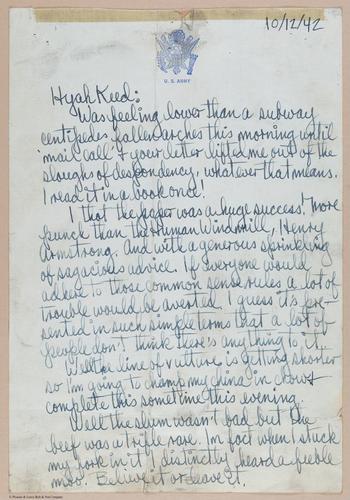 10/12/42
U. S. ARMY
Hyah Keed:
Was feeling lower than a subway
centipedes fallen arches this morning until
'mail call' & your letter lifted me out of the
sloughs of despondency, whatever that means.
I read it in a book once!
I thot the paper was a huge success! More
punch than the Human Windmill, Henry
Armstrong. And with a generous sprinkling
of sagacious advice. If everyone would
adhere to those common sense rules a lot of
trouble would be averted. I guess it's pre-
sented in such simple terms that a lot of
people don't think there's anything to it.
Well the line of vulture is getting shorter
so I'm going to champ my china in & own
complete this sometime this evening.
Well the slum wasn't bad but the
beef was a trifle rare. In fact when I stuck
my fork in it I distinctly heard a feeble
moo. Believe it or leave it.